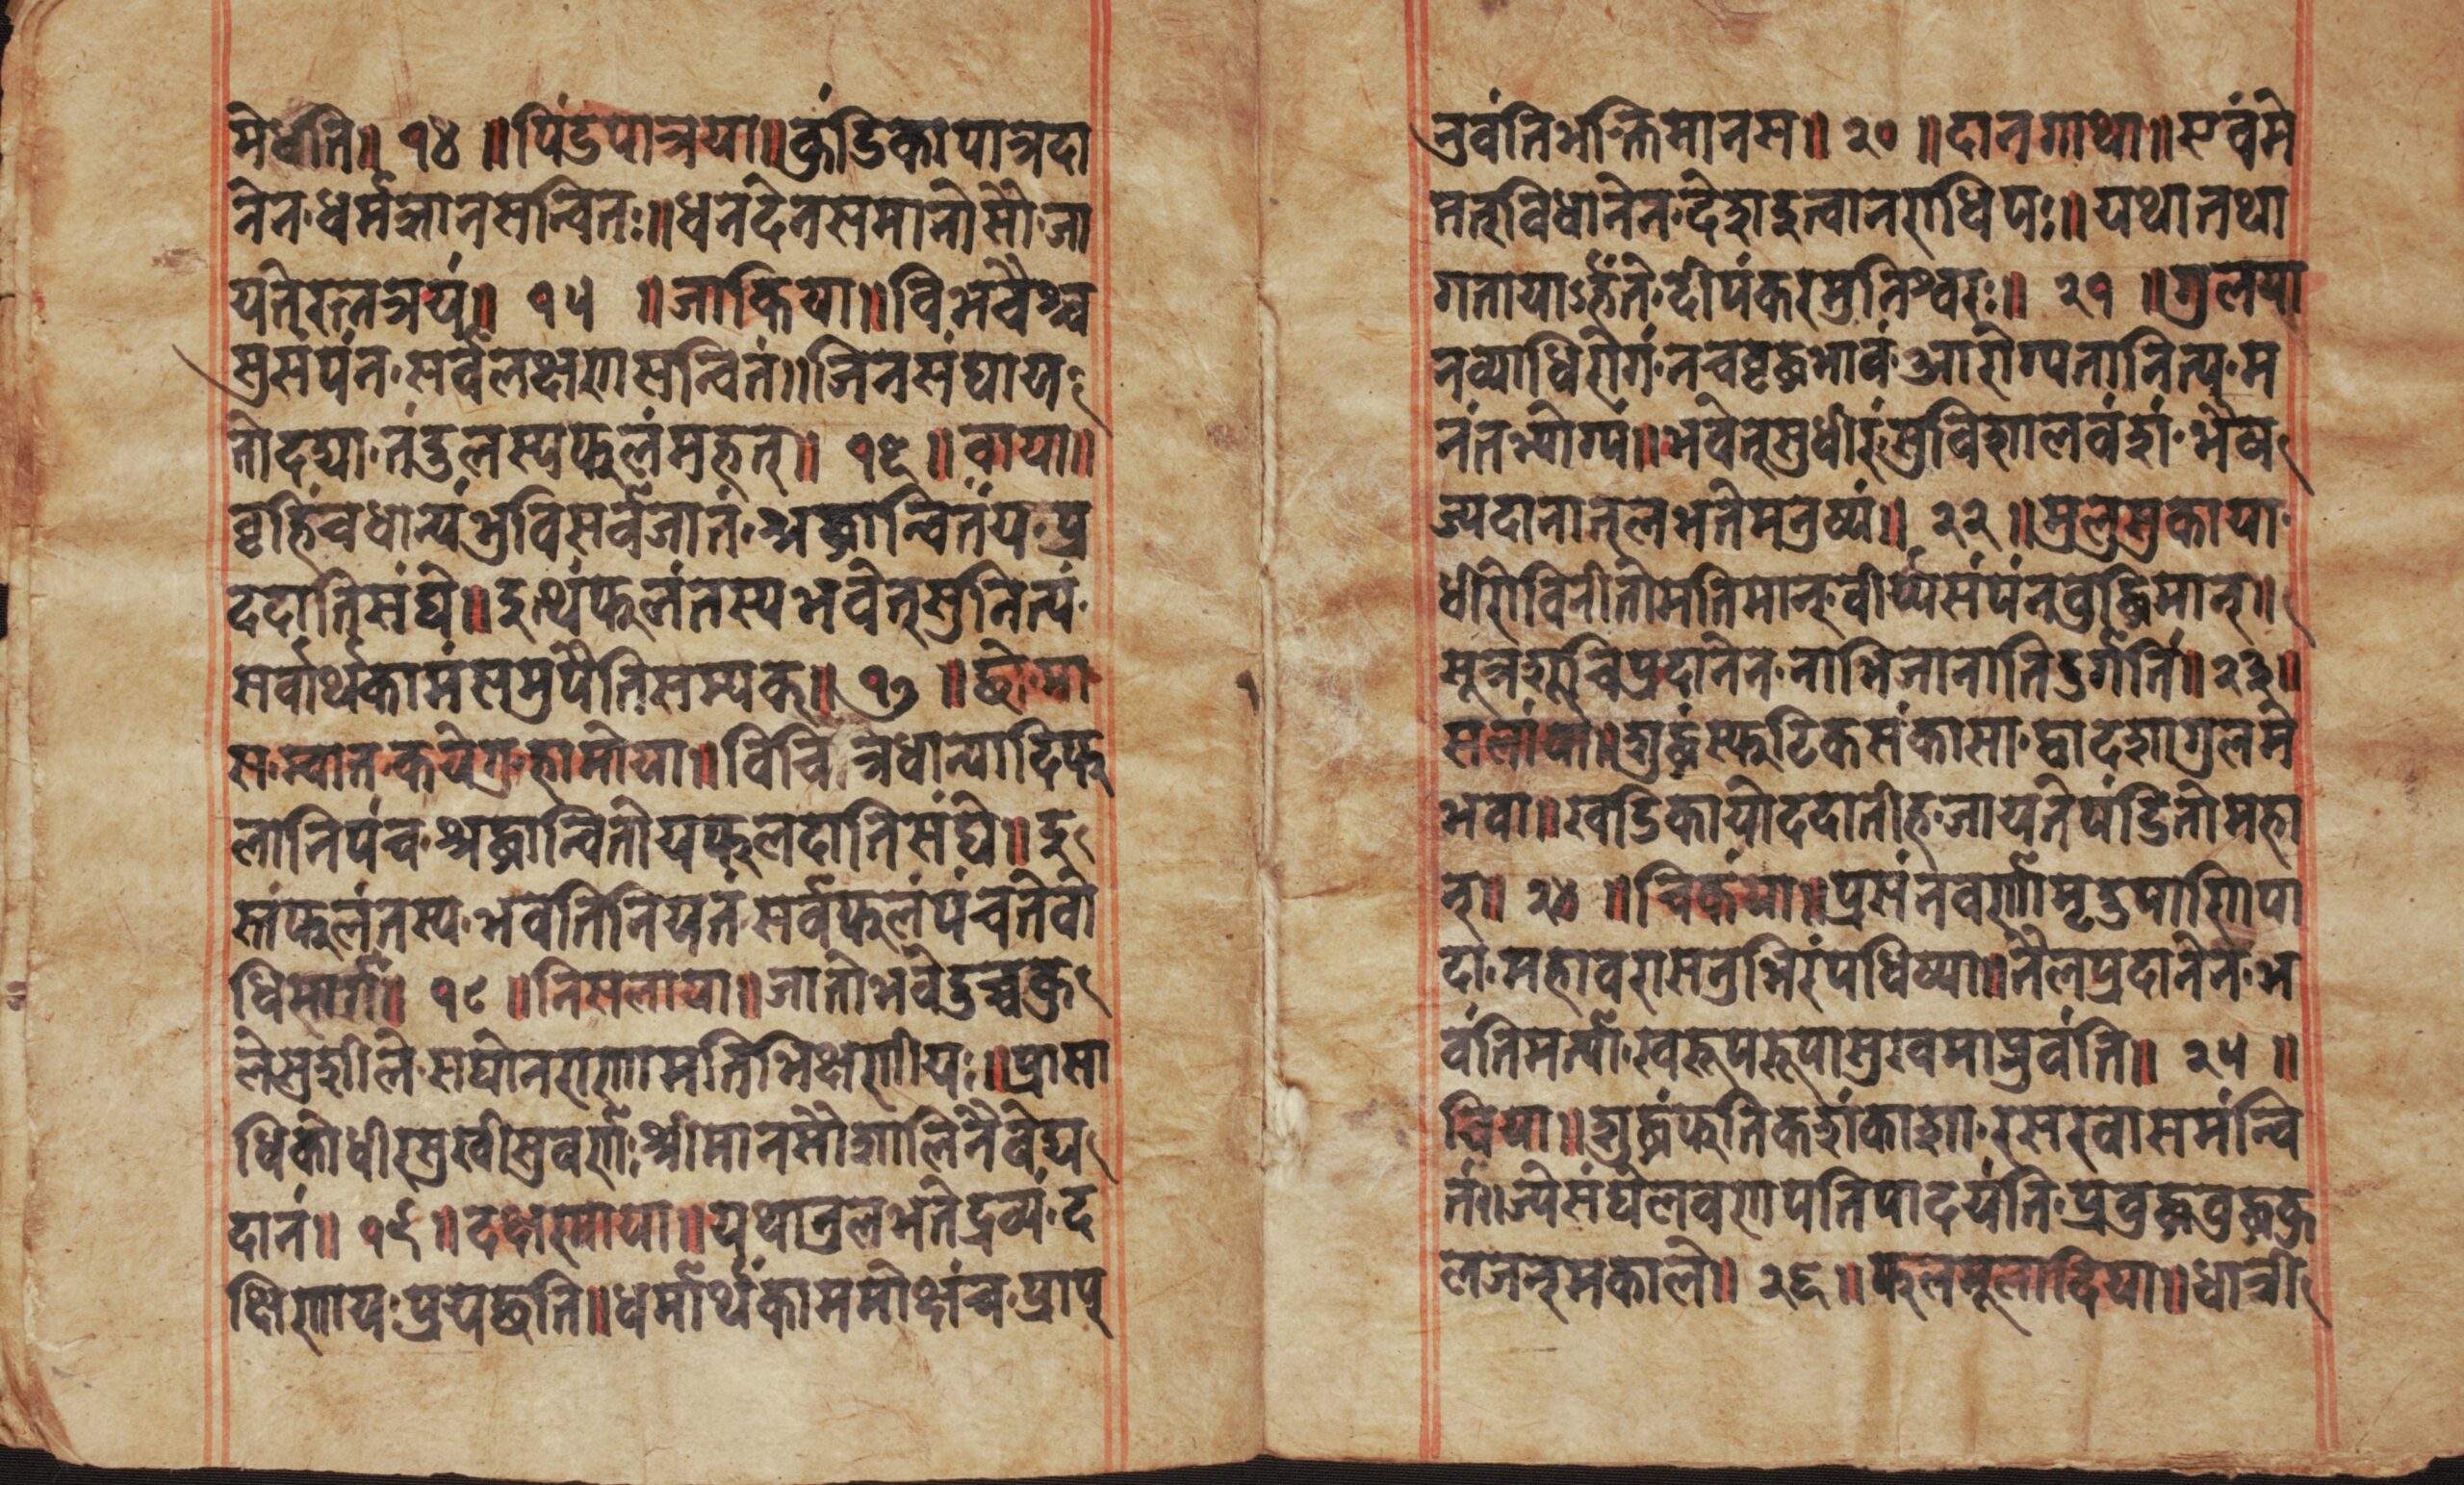 मेधति॥ १४ ॥पिंडपात्रया॥कुंडिकापात्रदा
नेन॰धर्मज्ञानसन्वितः॥धनदेनसमानोसौ॰जा
यतेरत्नत्रयं॥ १५ ॥जाकिया॥विभवैश्व
सुसंपंन॰सर्वलक्षणसन्वितं॥जिनसंघाय
तोदद्या॰तंडुलस्यफलंमहत्॥ १६ ॥वाया॥
वृहिंचधान्यंभुविसर्वजातं॰श्रद्धान्वितंय॰प्र
ददातिसंघे॥इत्थंफलंतस्यभवेतुसुनित्यं॰
सर्वार्थकामंसमुपैतिसम्यक्॥ १७ ॥
विचित्रधान्यादिफ
लानिपंच॰श्रद्धान्वितोयफलदातिसंघे॥इ
संफलंतस्य॰भवेतिनियतं॰सर्वफलंपंचतेवो
धिमार्गं॥ १८ ॥निसलाया॥जातोभवेदुच्चकु
लेसुशीले॰सर्घानराणामतिभिक्षणीयः॥प्रासा
धिकोधीरसुखीसुवर्णः॰श्रीमानसौशालिनैवेद्य
दानं॥ १९ ॥दक्षणाया॥यथानुलभतेद्रव्यं॰द
क्षिणाय॰प्रयच्छति॥धर्मार्थकाममोक्षंच॰प्राप्
नुवंतिभक्तिमानस॥ २० ॥दानगाथा॥एवंमे
मतविधानेन॰देशदुत्वानराधिपः॥यथातथा
गतायाऽर्हंते॰दीपंकरमुनिश्वरः॥ २१ ॥गुलया
नव्याधिरोगं॰नचवृद्धभावं॰आरोग्यतानित्य॰म
नंतभ्योग्यं॥भवेतुसुधीरंसुविशालवंशं॰भैष
ज्यदानात्लभतेमनुष्यं॥ २२ ॥मुलुसुकाया॰
धीरोविनीतोमतिमान्॰वीर्य्यसंपंनवुद्धिमान्॥
सूत्रशूचिप्रदानेन॰नाभिजानातिदुर्गतिं॥ २३॥
सलांया॥शुद्धंस्फटिकसंकासा॰द्वादशागुलमे
भवा॥खडिकायोददातीह॰जायतेपंडितोमहा
न्॥ २४ ॥चिकंया॥प्रसंनवर्णामृदुपाणिपा
दा॰महावरासनुभिरंपधिष्या॥तैलप्रदानेन॰भ
वंतिमर्त्या॰स्वरूपरूपासुखमाप्नुवंति॥ २५ ॥
चिया॥शुद्धंफतिकशंकाशा॰रसरवासमंन्वि
तं॥ज्येसंघेलवणपतिपादयंति॰प्रवुद्धवुद्धकु
लजन्मकाले॥ २६॥फलमूलादिया॥धात्री